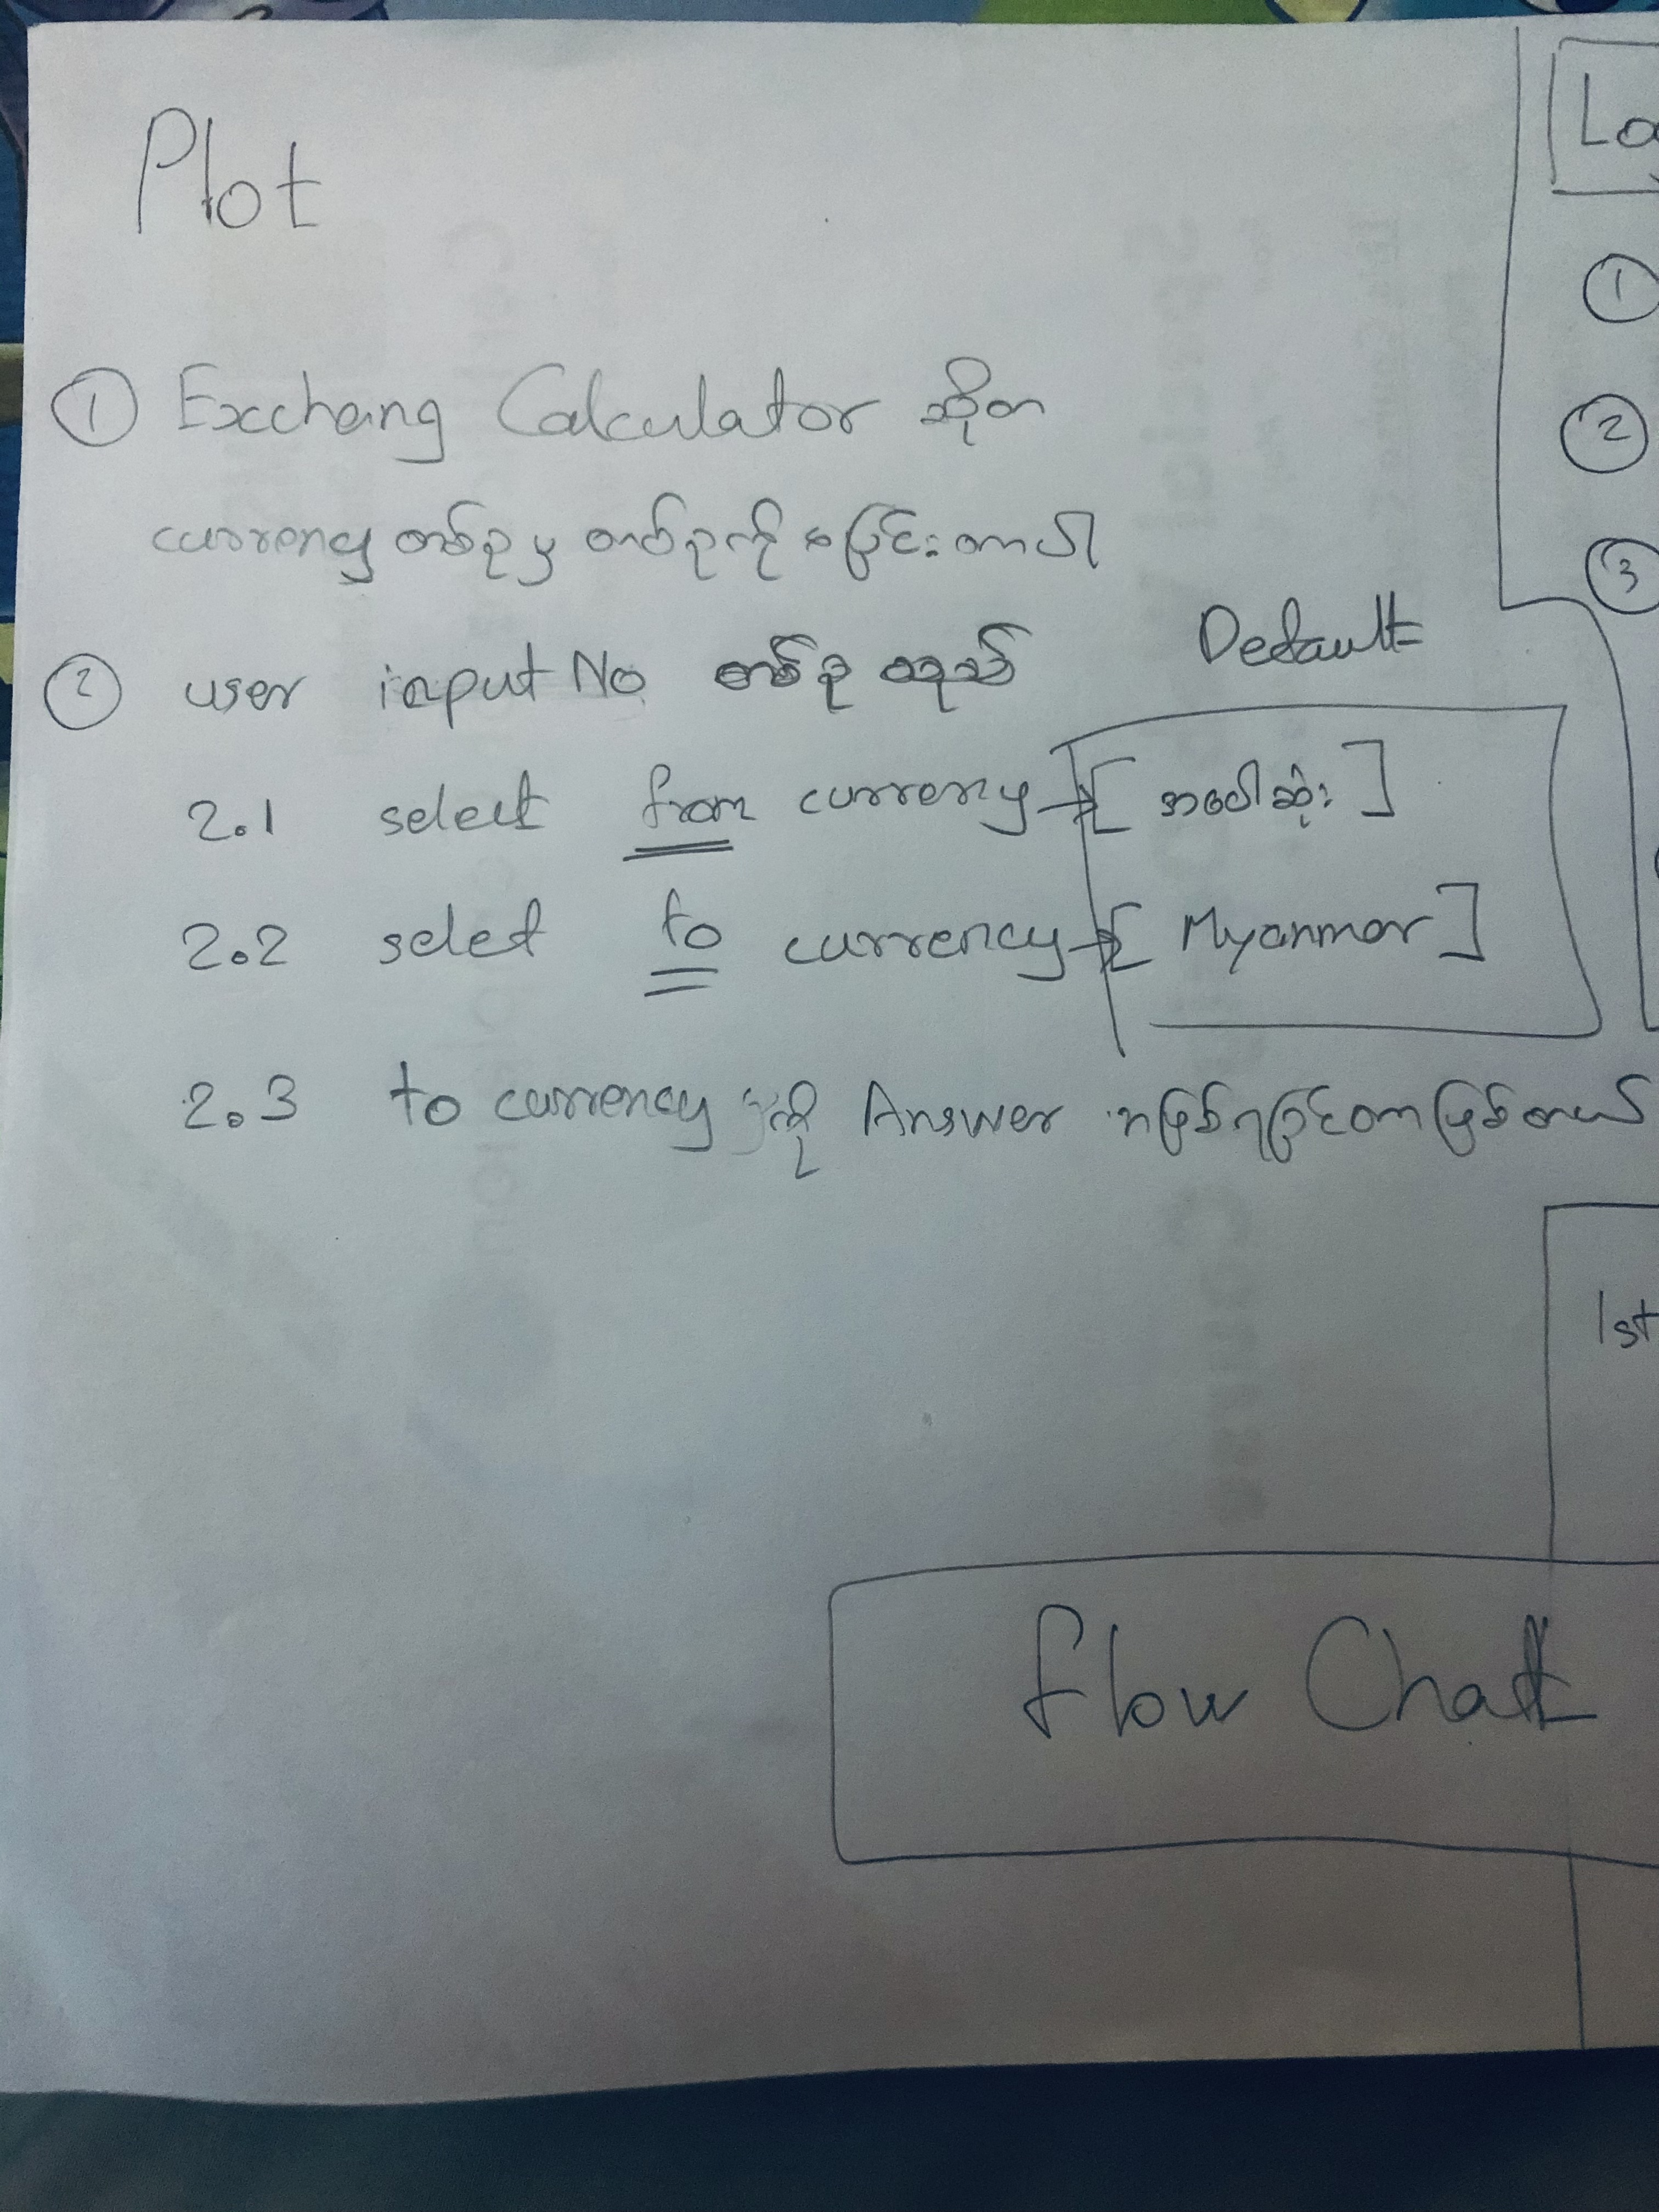 Plot
① Excchang Calculator ဆိုတာ
currency တစ်ခုမှ တစ်ခုကို ပြောင်းတာပါ
② user input No တစ်ခု ယူသည်
Default
2.1 select from currency → [ အပေါ်ဆုံး ]
2.2 select to currency → [ Myanmar ]
2.3 to currency ကို Answer အဖြစ်ရခြင်တာဖြစ်တယ်
①
②
③
1st
flow Chatt